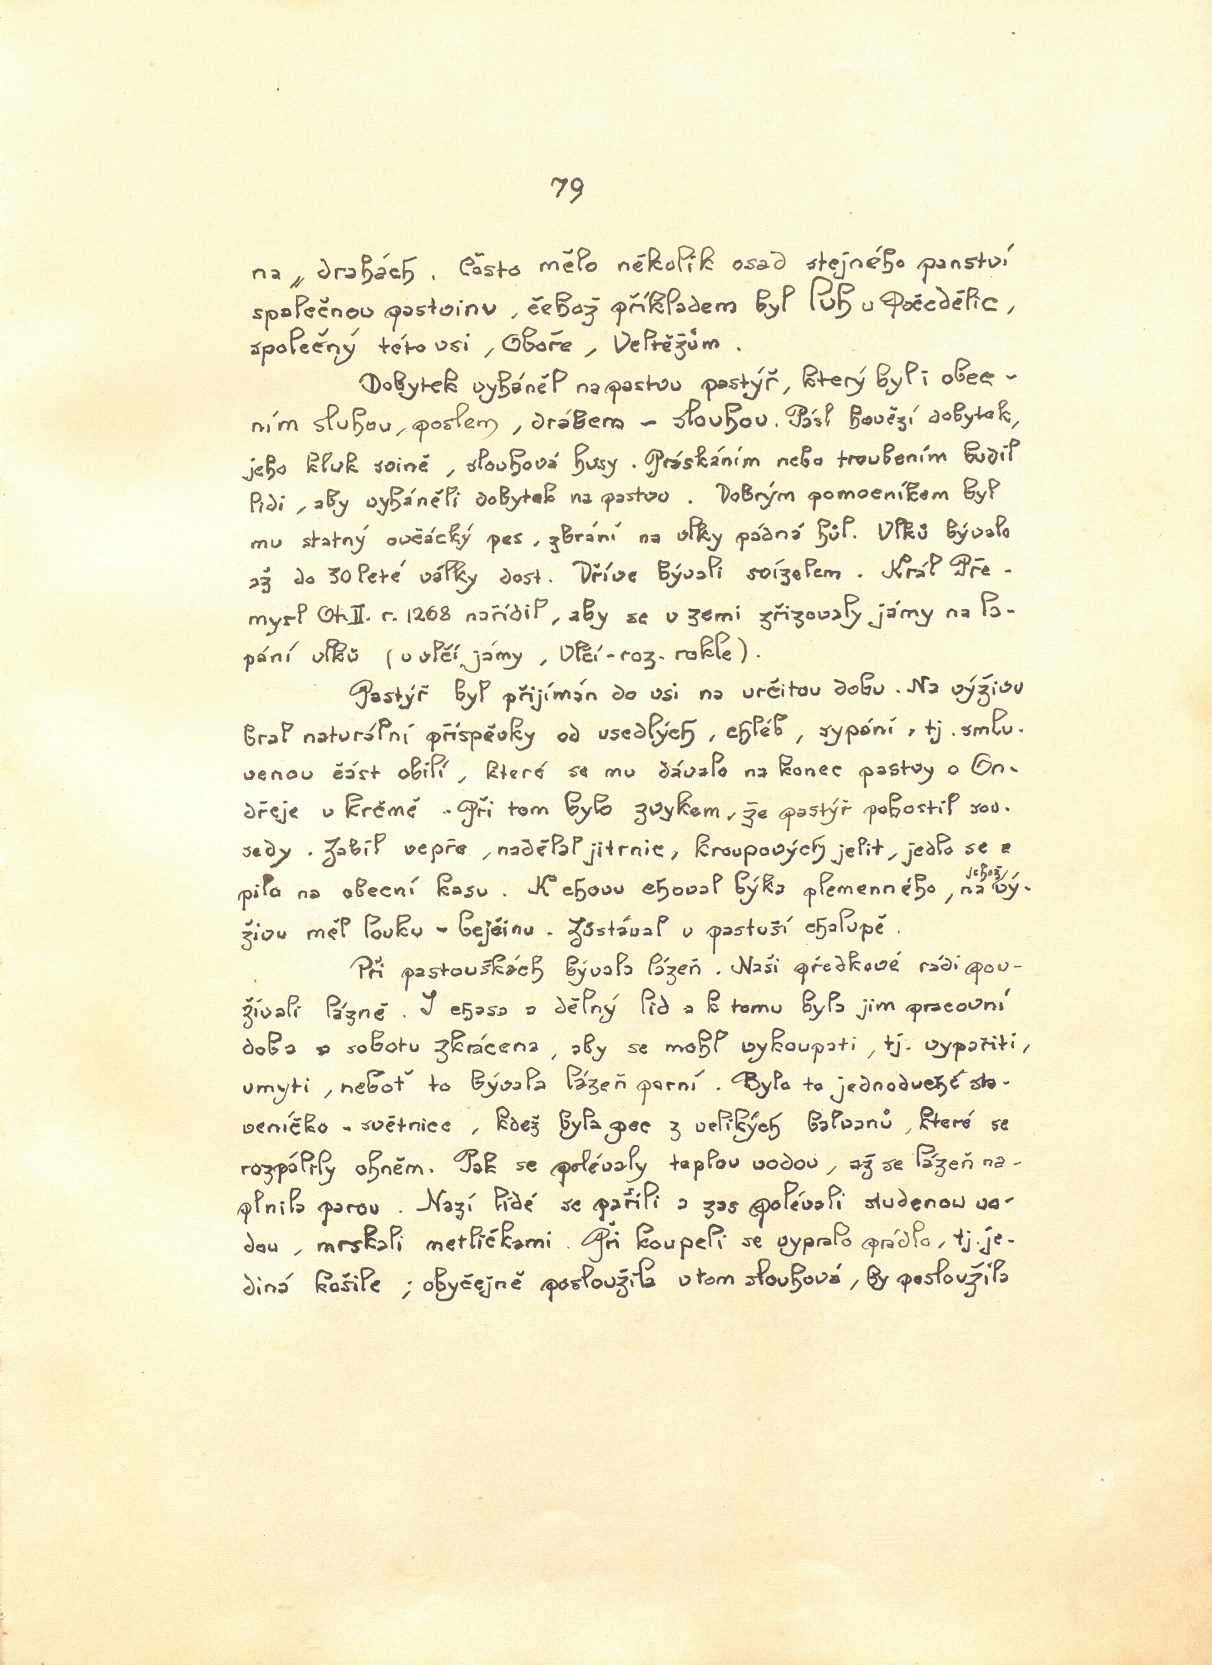 79
na „ drahách. Často mělo několik osad stejného panství
společnou pastvinu, čehož příkladem byl luh u Počedělic,
společný této vsi, Oboře, Veltěžům.
Dobytek vyháněl na pastvu pastýř, který byl i obec-
ním sluhou, poslem, drábem - slouhou. Pásl hovězí dobytek,
jeho kluk svině, slouhová husy. Práskáním nebo troubením budil
lidi, aby vyháněli dobytek na pastvu. Dobrým pomocníkem byl
mu statný ovčácký pes, zbrání na vlky pádná hůl. Vlků bývalo
až do 30leté války dost. Dříve bývali svízelem. Král Pře-
mysl Ot. II. r. 1268 nařídil, aby se v zemi zřizovaly jámy na la-
pání vlků (u vlčí jámy, Vlčí-roz-rokle).
Pastýř byl přijímán do vsi na určitou dobu. Na výživu
bral naturální příspěvky od usedlých, chléb, sypání, tj. smlu-
venou část obilí, které se mu dávalo na konec pastvy o On-
dřeje v krčmě. Při tom bylo zvykem, že pastýř pohostil sou-
sedy. Zabil vepře, nadělal jitrnic, kroupových jelit, jedlo se a
pilo na obecní kasu. K chovu choval býka plemenného, na jehož vý-
živu měl louku - bejčinu. Zůstával v pastuší chalupě.
Při pastouškách bývala lázeň. Naši předkové rádi pou-
žívali lázně. I chasa a dělný lid a k tomu byla jim pracovní
doba v sobotu zkrácena, aby se mohl vykoupati, tj. vypařiti,
umyti, neboť to bývala lázeň parní. Bylo to jednoduché sta-
veníčko - světnice, kdež byla pec z velikých balvanů, které se
rozpálily ohněm. Pak se polévaly teplou vodou, až se lázeň na-
plnila parou. Nazí lidé se pařili a zas polévali studenou vo-
dou, mrskali metličkami. Při koupeli se vypralo prádlo, tj. je-
diná košile; obyčejně posloužila v tom slouhová, by posloužila